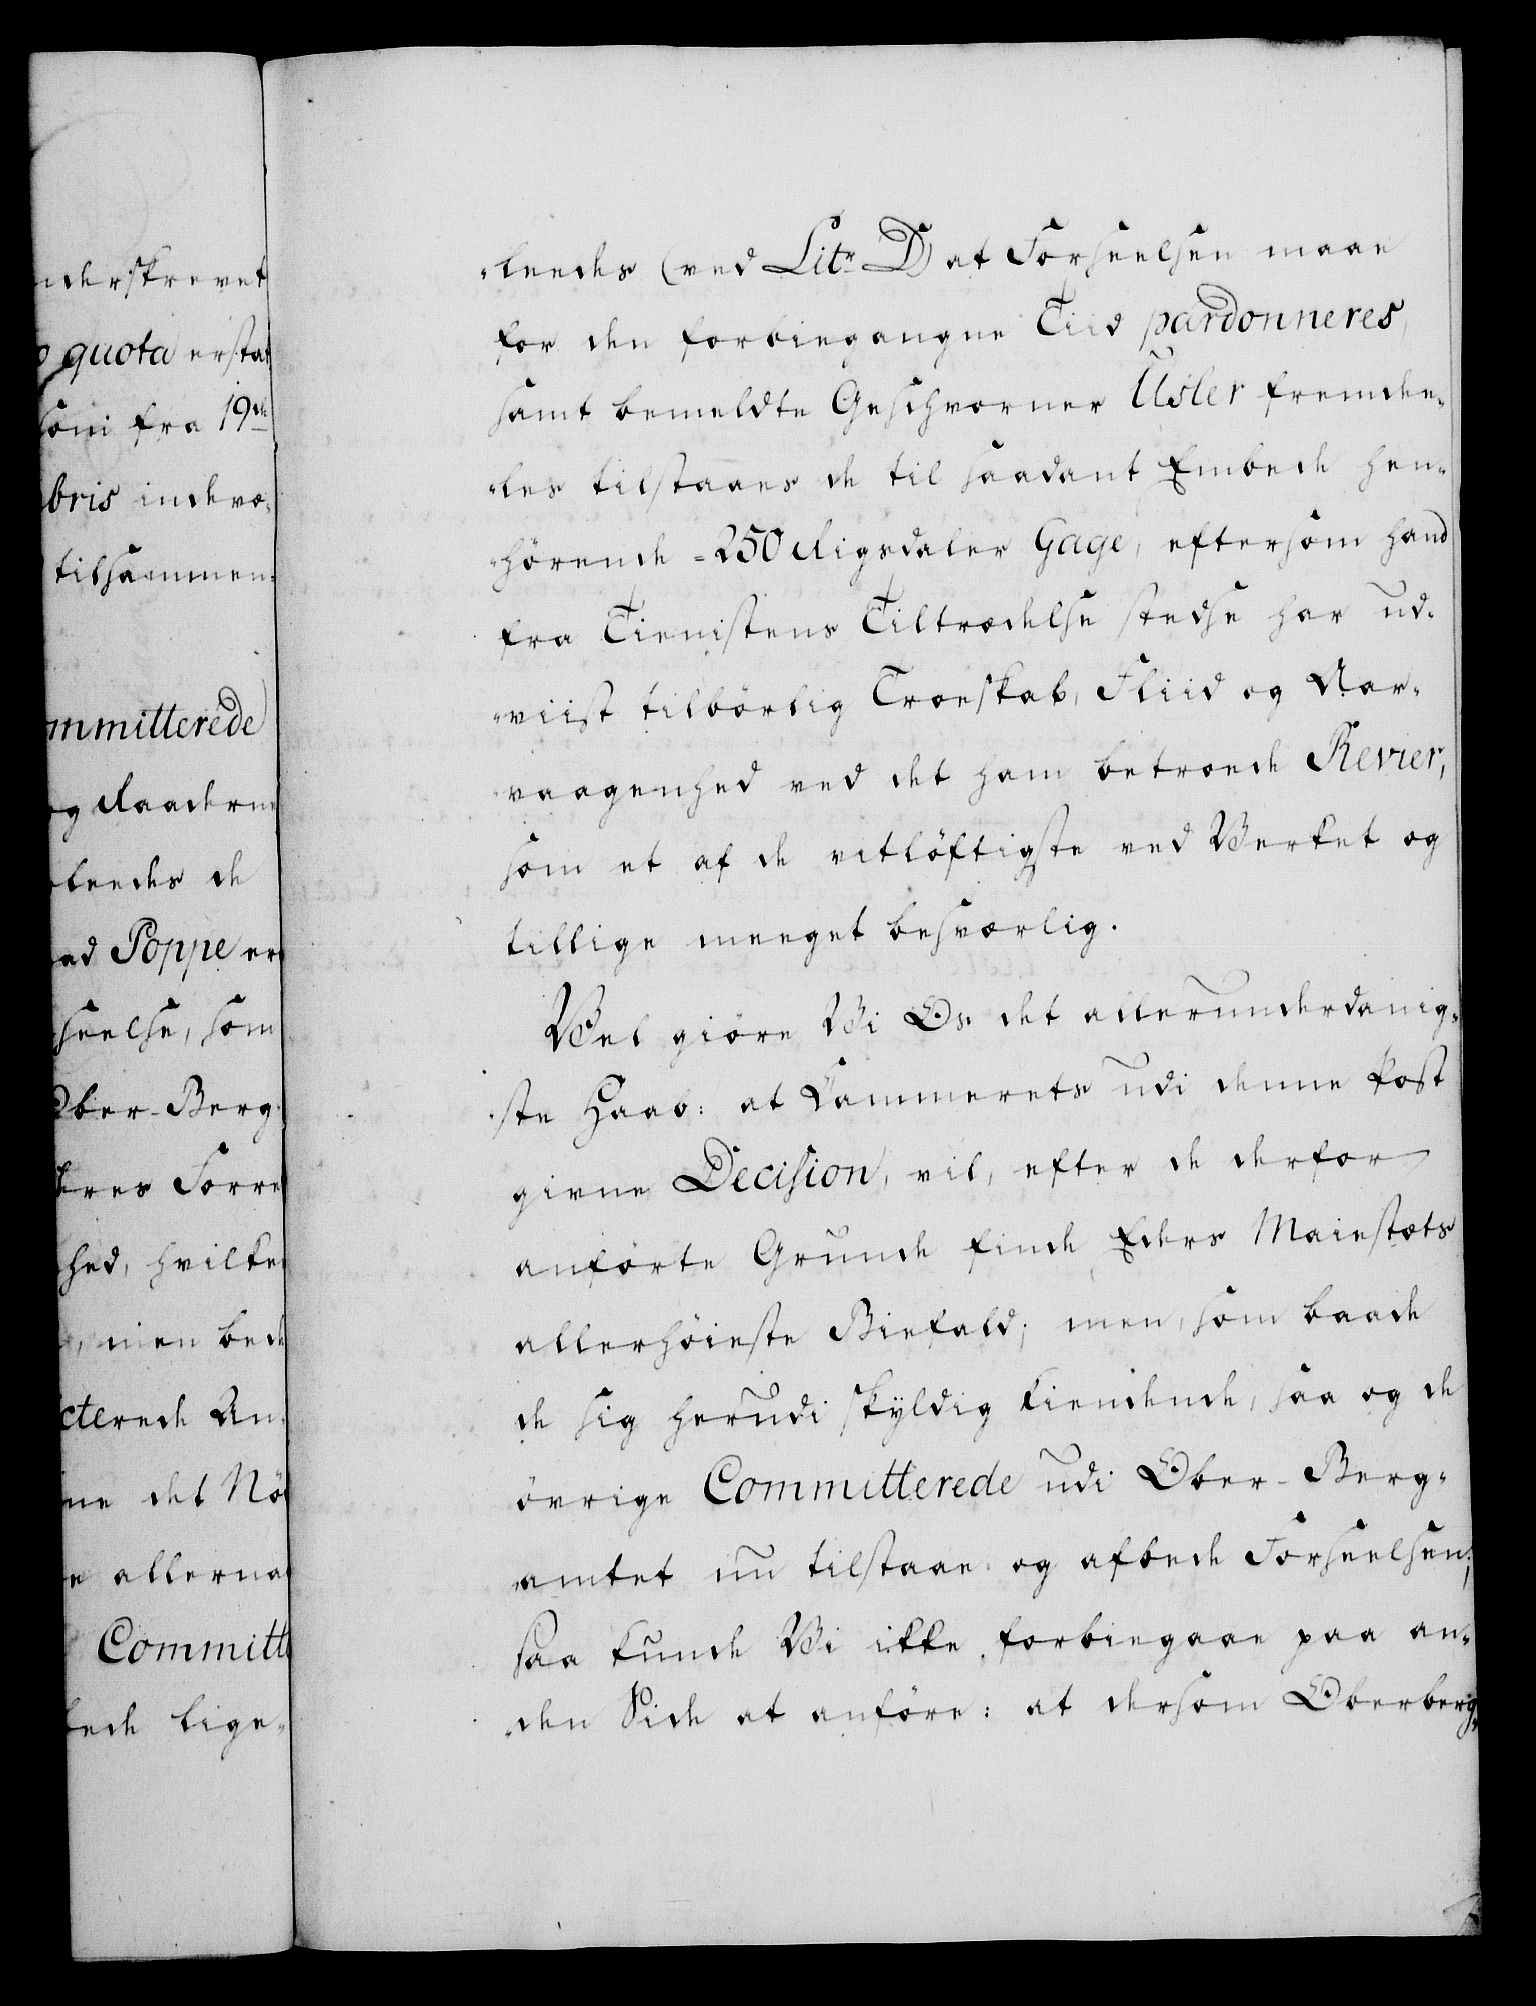 nderskrevet
quota erstat
soni fra 19de
bris indevæ-
tilsammen-
mmitterede
og Raaderne
leedes de
Poppe er
seelse, som
Ober-Berg-
eres Forre
hed, hvilke
, men bed
cterede An-
ne det Nö
e allerna
Committ
bede lige-
-leedes (ved Litr D) at Forseelsen maae
for den forbiegangne Tiid pardonneres,
samt bemeldte Geschworner Usler fremdee-
-les tilstaaes de til saadant Embede hen-
-hörende =250 Rigsdaler Gage, eftersom hand
fra Tienistens Tiltrædelse stedse har ud-
-viist tilbörlig Troeskab, Fliid og Aar-
-vaagenhed ved det ham betroede Revier,
som et af de vitlöftigste ved Werket og
tillige meeget besværlig.
Vel giöre Vi Os det allerunderdanig-
-ste Haab: at Cammerets udi denne Post
givne Decision, vil, efter de derfor
anförte Grunde finde Eders Maiestæts
allerhöieste Biefald; men, som baade
de sig herudi skyldig kiendende, saa og de
övrige Committerede udi Ober-Berg-
-amtet nu tilstaae og afbede Forseelsen;
saa kunde Vi ikke forbiegaae paa an-
-den Side at anföre: at dersom Oberberg-